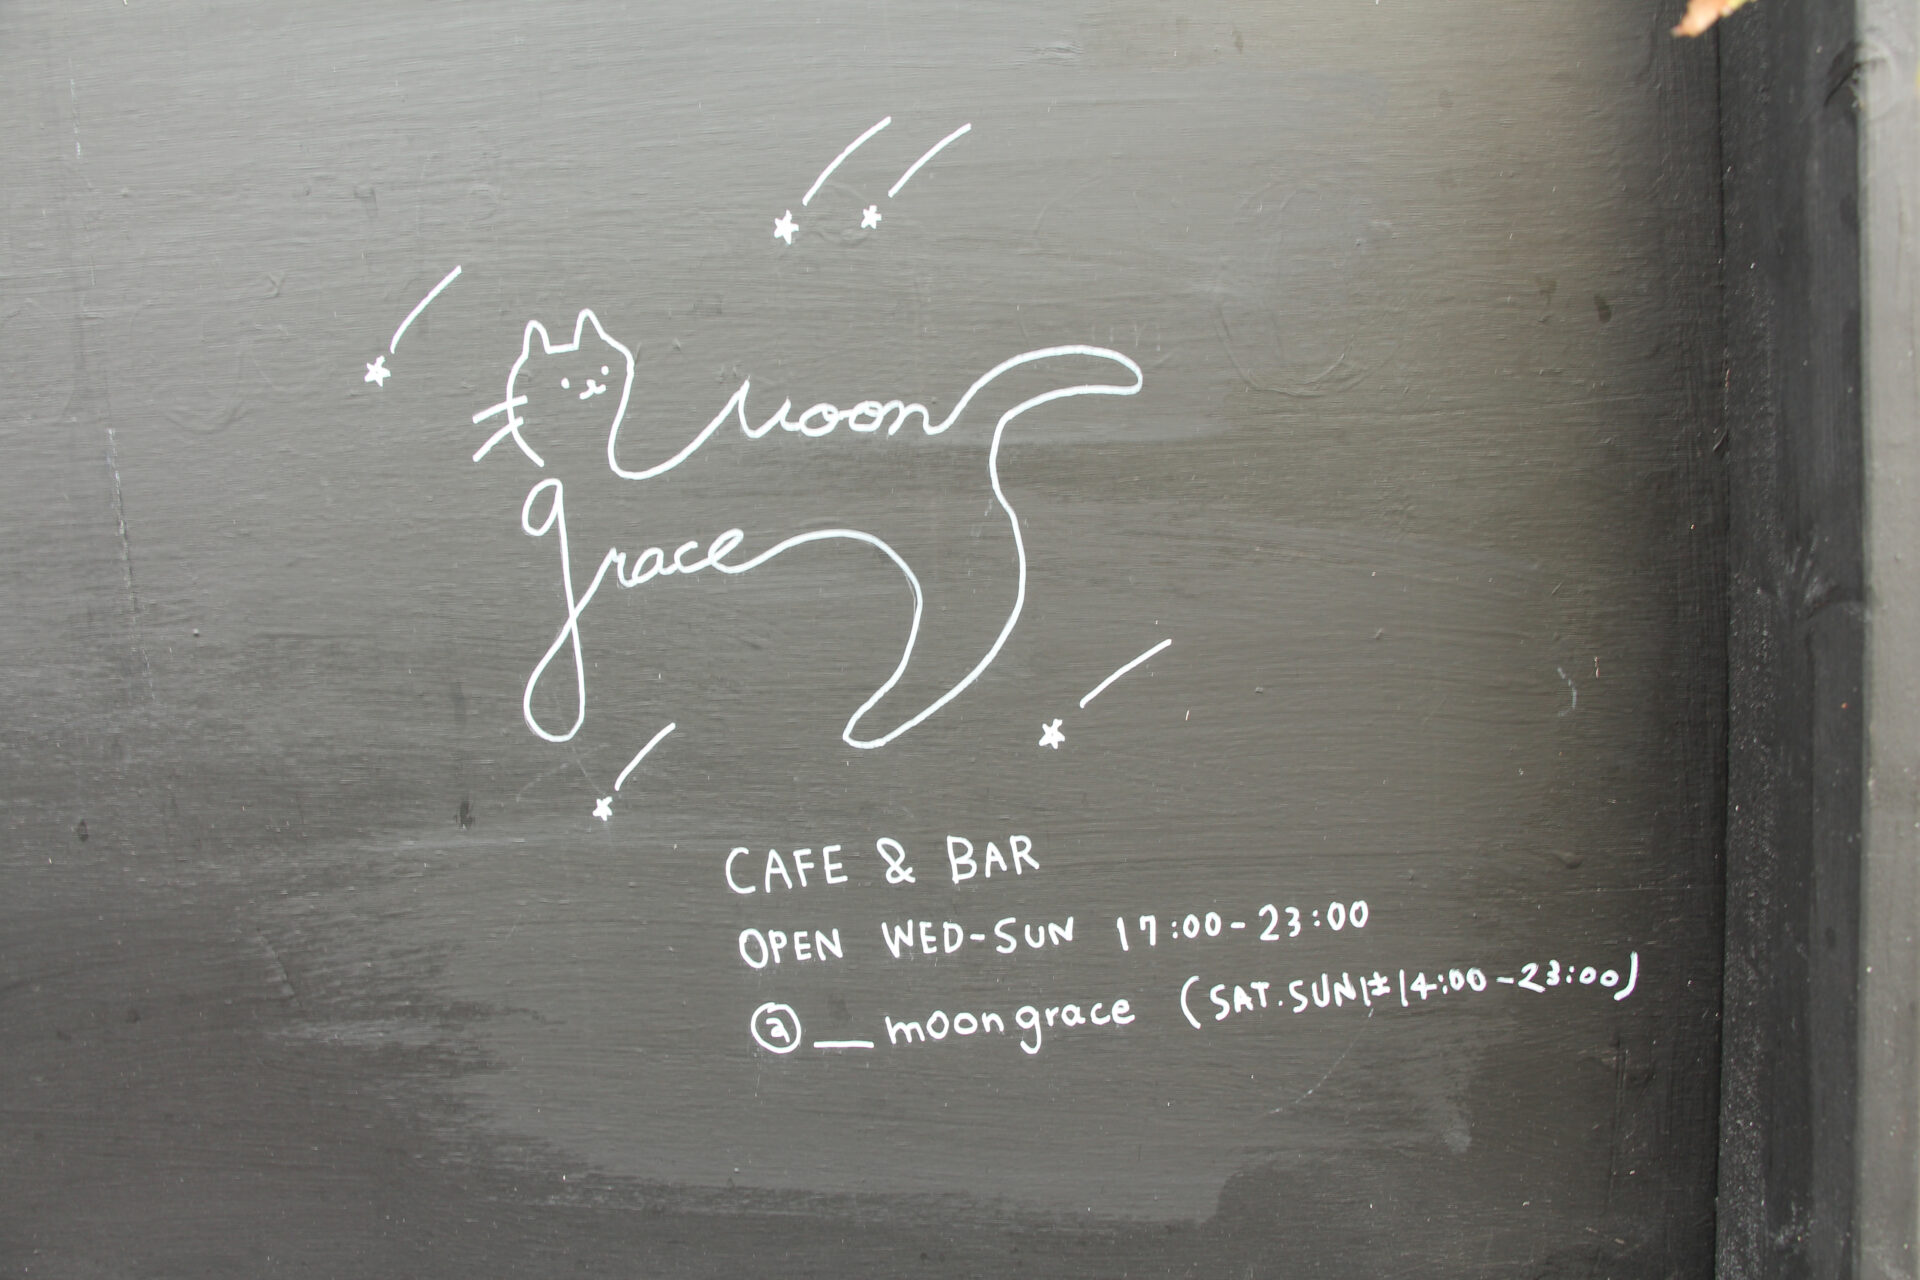 Moon
grace
CAFE & BAR
OPEN WED-SUN 17:00-23:00
(SAT.SUNは14:00-23:00)
@__moongrace